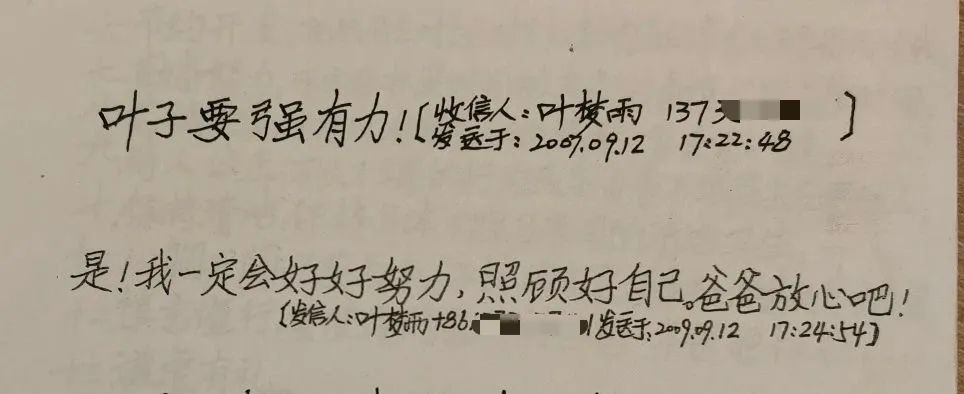 叶子要强有力！[收信人：叶梦雨 1373
发送于：2007.09.12 17:22:48]
是！我一定会好好努力，照顾好自己。爸爸放心吧！
[发信人：叶梦雨+86 发送于：2009.09.12 17:24:54]